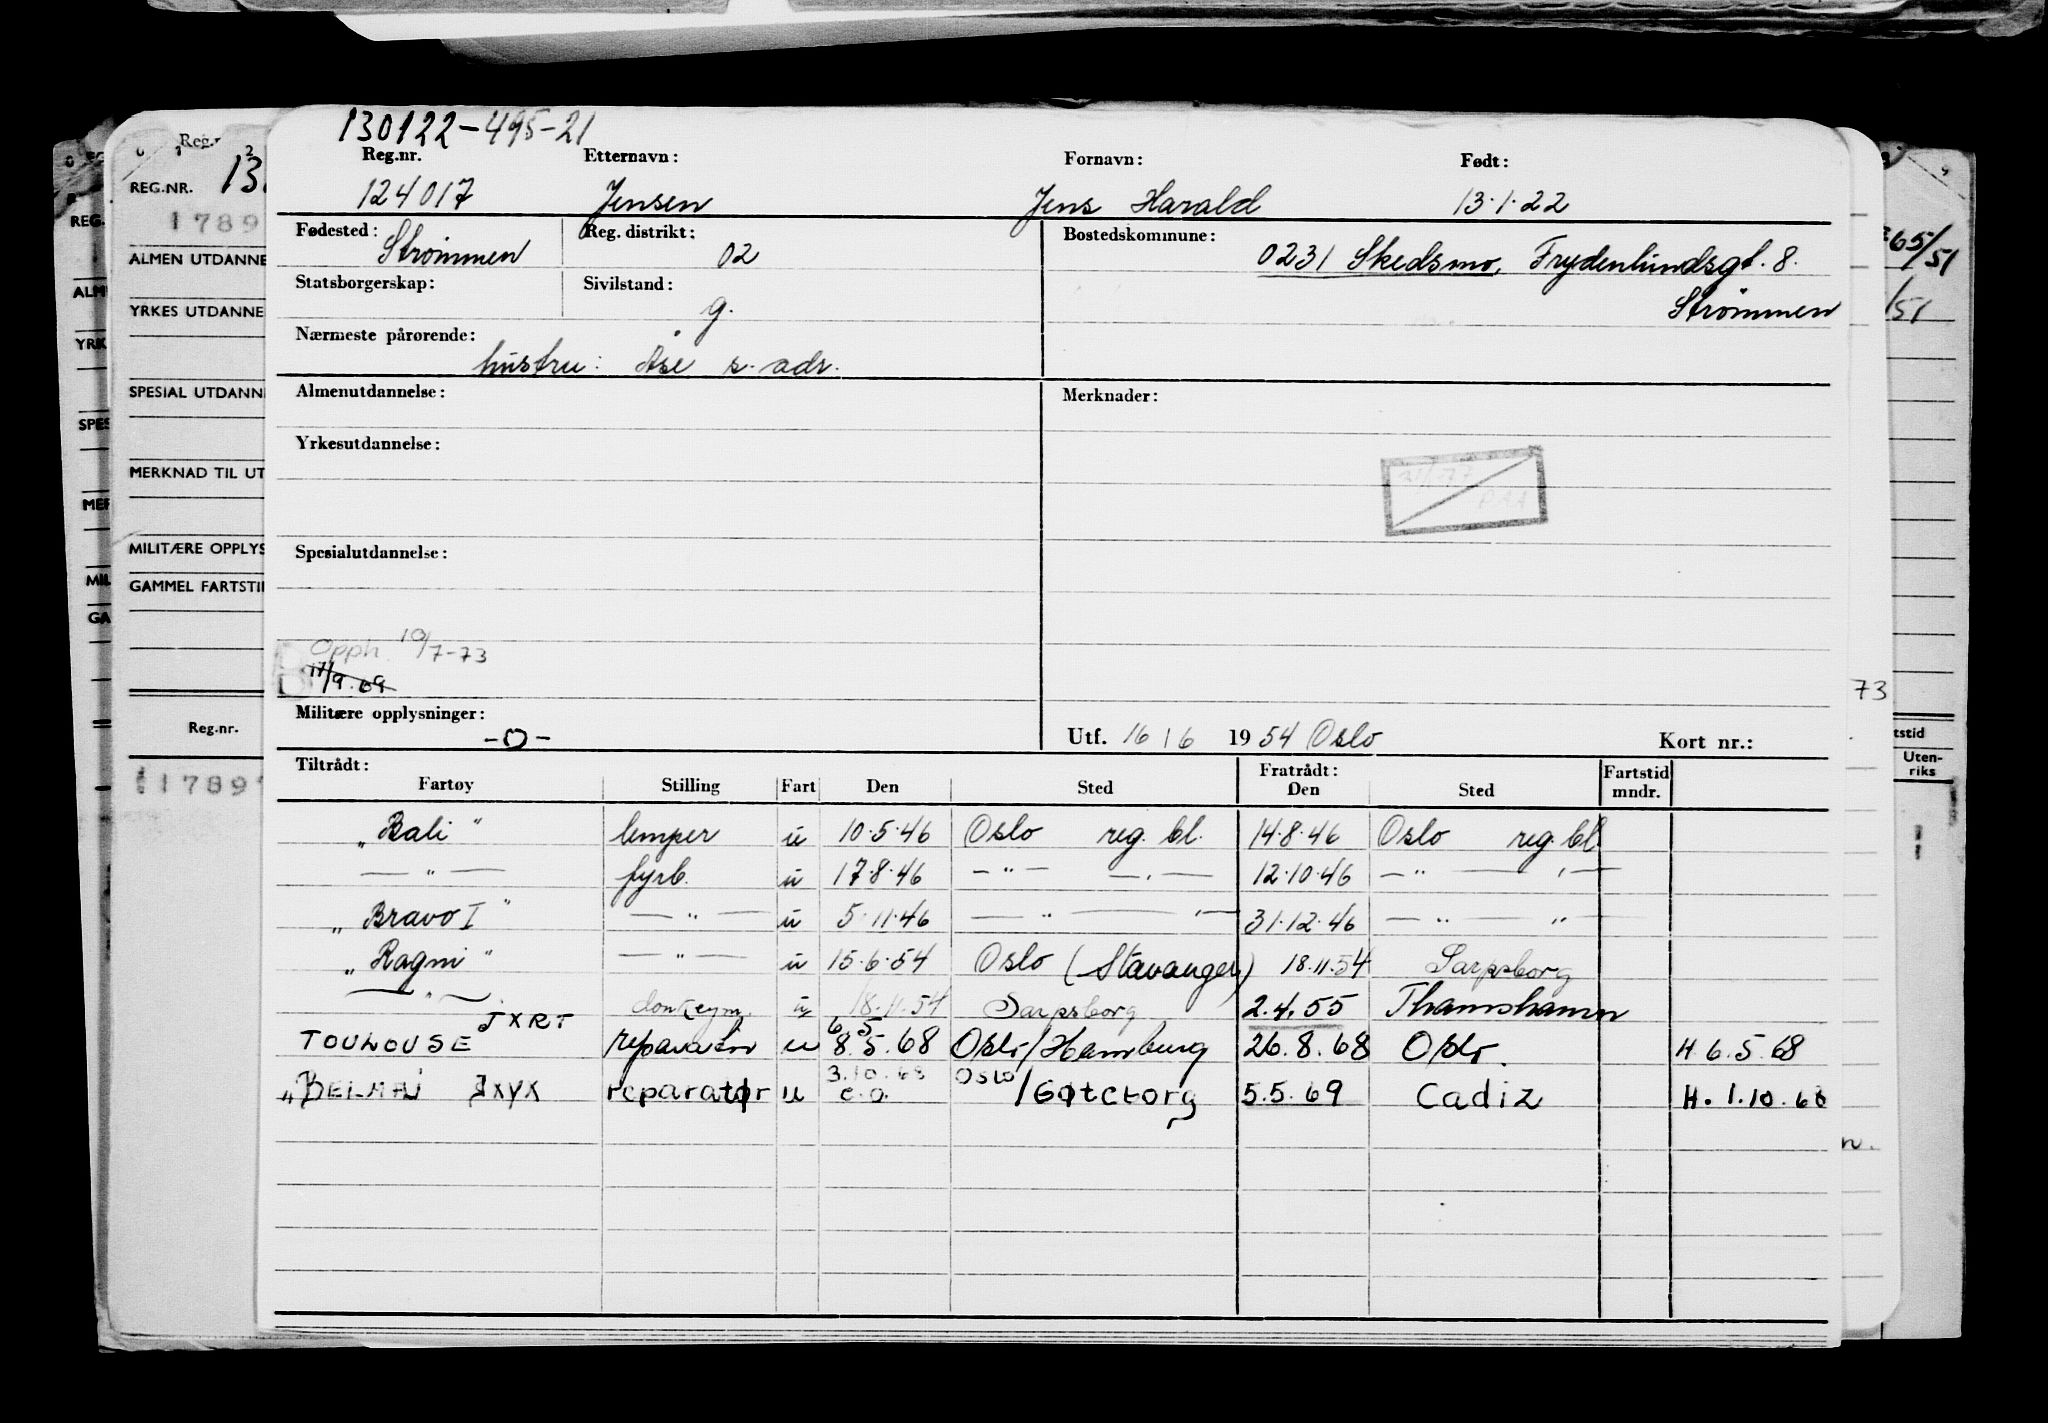 130122-495-21
Reg.nr. Etternavn: Fornavn: Født:
124017 Jensen Jens Harald 13.1.22
Fødested: Strømmen Reg. distrikt: 02 Bostedskommune: 0231 Skedsmo, Frydenlundsgt. 8.
Strømmen
Statsborgerskap: Sivilstand: g.
Nærmeste pårørende:
hustru: Åse s. adr.
Almenutdannelse: Merknader:
Yrkesutdannelse:
Spesialutdannelse:
Opph 10/7-73
17/9.69
Militære opplysninger: -0- Utf. 16/6 1954 Oslo Kort nr.:
Tiltrådt: Fratrådt: Fartstid
Fartøy Stilling Fart Den Sted Den Sted mndr.
"Bali" lemper u 10.5.46 Oslo reg. bl. 14.8.46 Oslo reg. bl.
— " — fyrb. u 17.8.46 — " — — " — 12.10.46 — " — — " —
"Bravo I" — " — u 5.11.46 — " — — " — 31.12.46 — " — — " —
"Ragni" — " — u 15.6.54 Oslo (Stavanger) 18.11.54 Sarpsborg
— " — donkeym. u 18.11.54 Sarpsborg 2.4.55 Thamshamn
TOULOUSE JXRT reparatør u 6.5 8.5.68 Oslo/Hamburg 26.8.68 Oslo. H 6.5.68
"BELMAJ JXYX reparatør u 3.10.68 e.o. Oslo/Gøteborg 5.5.69 Cadiz H. 1.10.68
REG.NR. 13
1789
ALMEN UTDANNE
YRKES UTDANNE
SPESIAL UTDANN
MERKNAD TIL UT
MILITÆRE OPPLYS
GAMMEL FARTSTI
Reg.nr.
11789
REG.
ALM
YRK
SPES
MER
MIL
GA
65/51
/51
73
tstid
Uten-
riks
n.